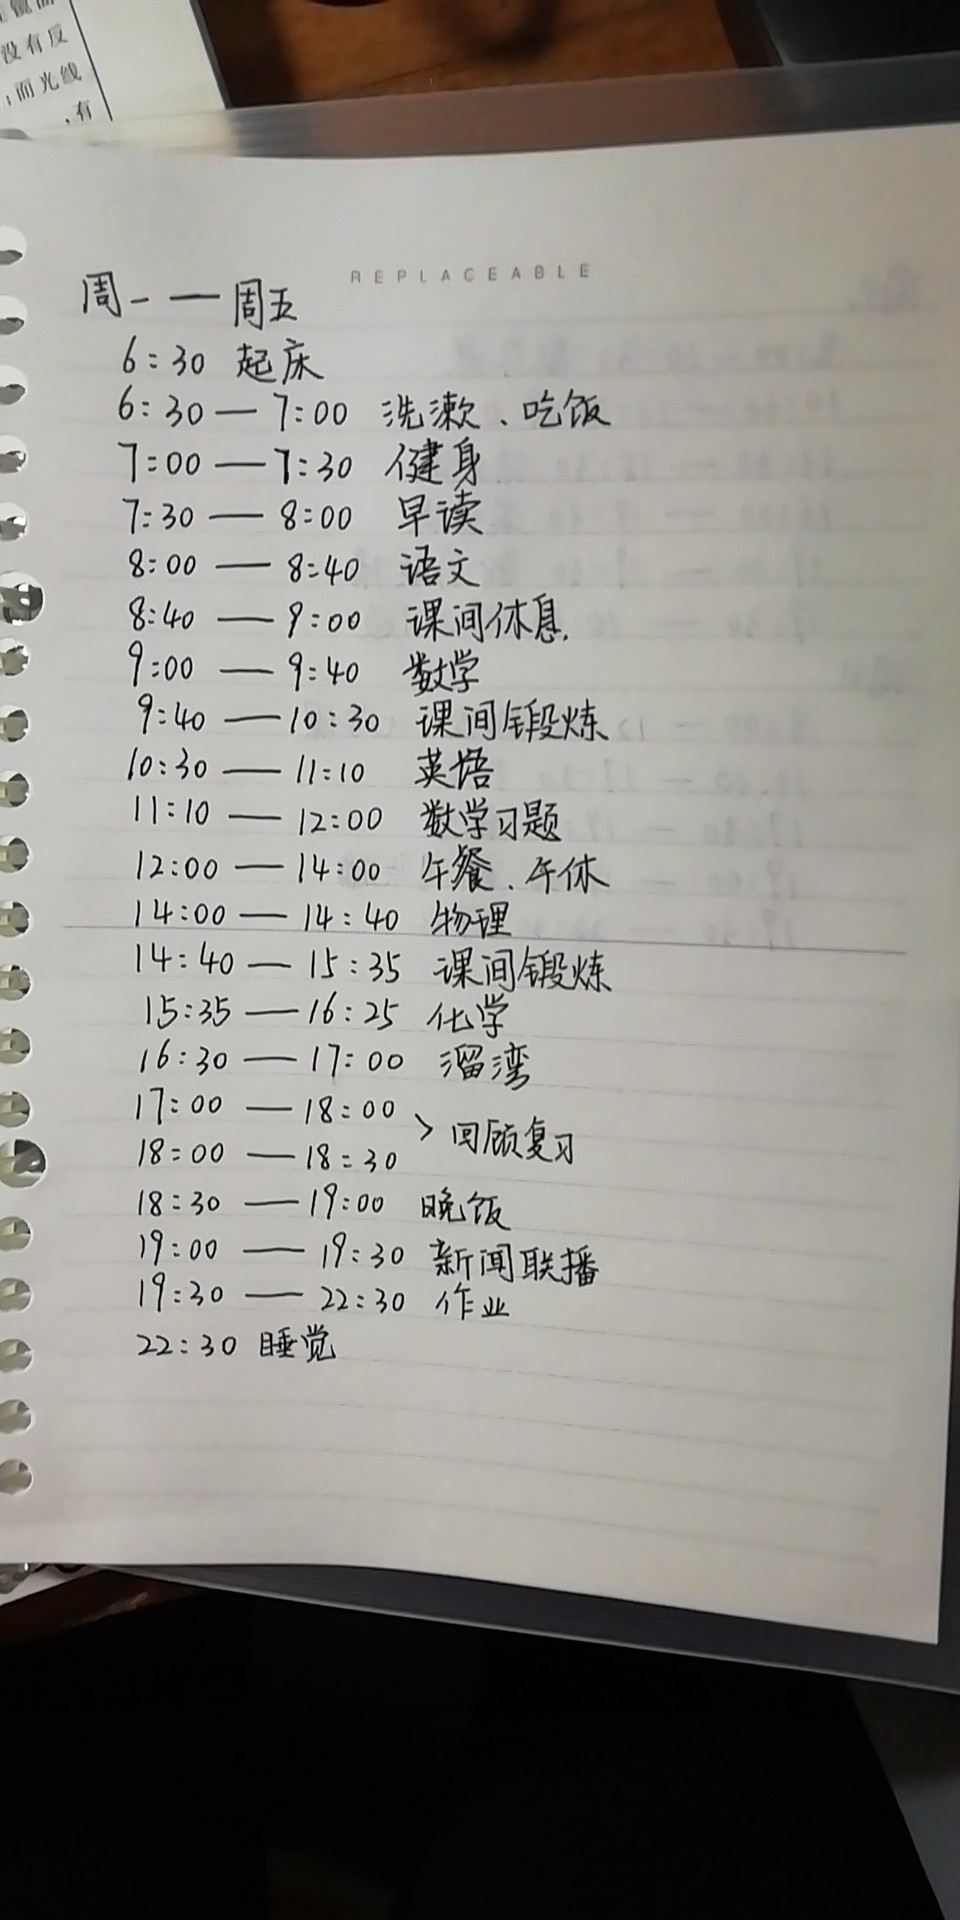 没有反
；而光线
，有
REPLACEABLE
周一 — 周五
6:30 起床
6:30 — 7:00 洗漱、吃饭
7:00 — 7:30 健身
7:30 — 8:00 早读
8:00 — 8:40 语文
8:40 — 9:00 课间休息.
9:00 — 9:40 数学
9:40 — 10:30 课间锻炼
10:30 — 11:10 英语
11:10 — 12:00 数学习题
12:00 — 14:00 午餐、午休
14:00 — 14:40 物理
14:40 — 15:35 课间锻炼
15:35 — 16:25 化学
16:30 — 17:00 溜湾
17:00 — 18:00
18:00 — 18:30 > 回顾复习
18:30 — 19:00 晚饭
19:00 — 19:30 新闻联播
19:30 — 22:30 作业
22:30 睡觉